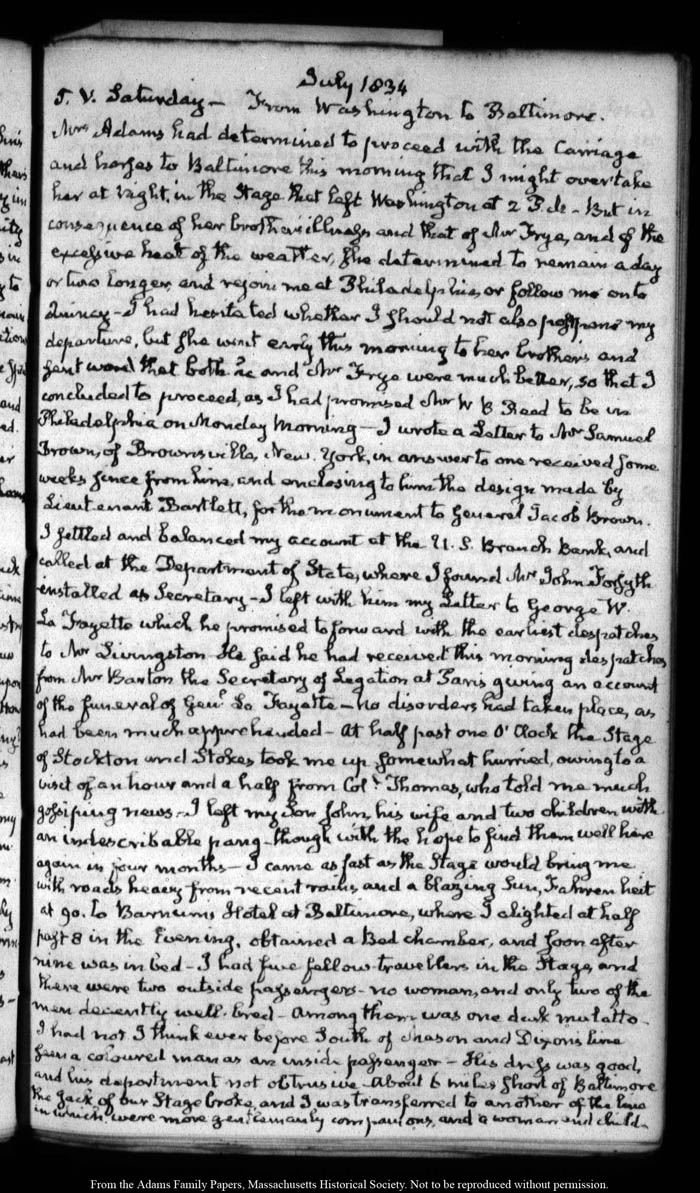 July 1834
5. V. Saturday — From Washington to Baltimore.
Mrs Adams had determined to proceed with the Carriage
and horses to Baltimore this morning that I might overtake
her at Night, in the Stage that left Washington at 2 P.M. – But in
consequence of her brother's illness and that of Mr Frye, and of the
excessive heat of the weather, she determined to remain a day
or two longer and rejoin me at Philadelphia, or follow me on to
Quincy – I had hesitated whether I should not also postpone my
departure, but she went early this morning to her brother's and
sent word that both he and Mr Frye were much better, so that I
concluded to proceed, as I had promised Mr W B Read to be in
Philadelphia on Monday Morning — I wrote a Letter to Mr Samuel
Brown, of Brownsville, New. York, in answer to one received some
weeks since from him, and enclosing to him the design made by
Lieutenant Bartlett, for the monument to General Jacob Brown.
I settled and balanced my account at the U. S. Branch Bank, and
called at the Department of State, where I found Mr John Forsyth
installed as Secretary – I left with him my Letter to George W.
La Fayette which he promised to forward with the earliest despatches
to Mr Livingston He said he had received this morning despatches
from Mr Barton the Secretary of Legation at Paris giving an account
of the funeral of Genl. La Fayette – no disorders had taken place, as
had been much apprehended – At half past one O'Clock the Stage
of Stockton and Stokes took me up somewhat hurried, owing to a
visit of an hour and a half from Coll. Thomas, who told me much
gossiping news – I left my Son John, his wife and two children with
an indescribable pang – though with the hope to find them well here
again in four months – I came as fast as the Stage would bring me
with roads heavy from recent rains and a blazing Sun, Fahrenheit
at 90. to Barnum's Hotel at Baltimore, where I alighted at half
past 8 in the Evening, obtained a Bed chamber, and soon after
nine was in bed – I had five fellow-travellers in the Stage, and
there were two outside passengers – no woman, and only two of the
men decently well-bred – Among them was one dark mulatto –
I had not I think ever before South of Mason and Dixon's line
seen a coloured man as an inside passenger – His dress was good,
and his deportment not obtrusive – About 6 miles short of Baltimore
the Jack of our Stage broke, and I was transferred to another of the line
in which were more gentlemanly companions, and a woman and child.
From the Adams Family Papers, Massachusetts Historical Society. Not to be reproduced without permission.